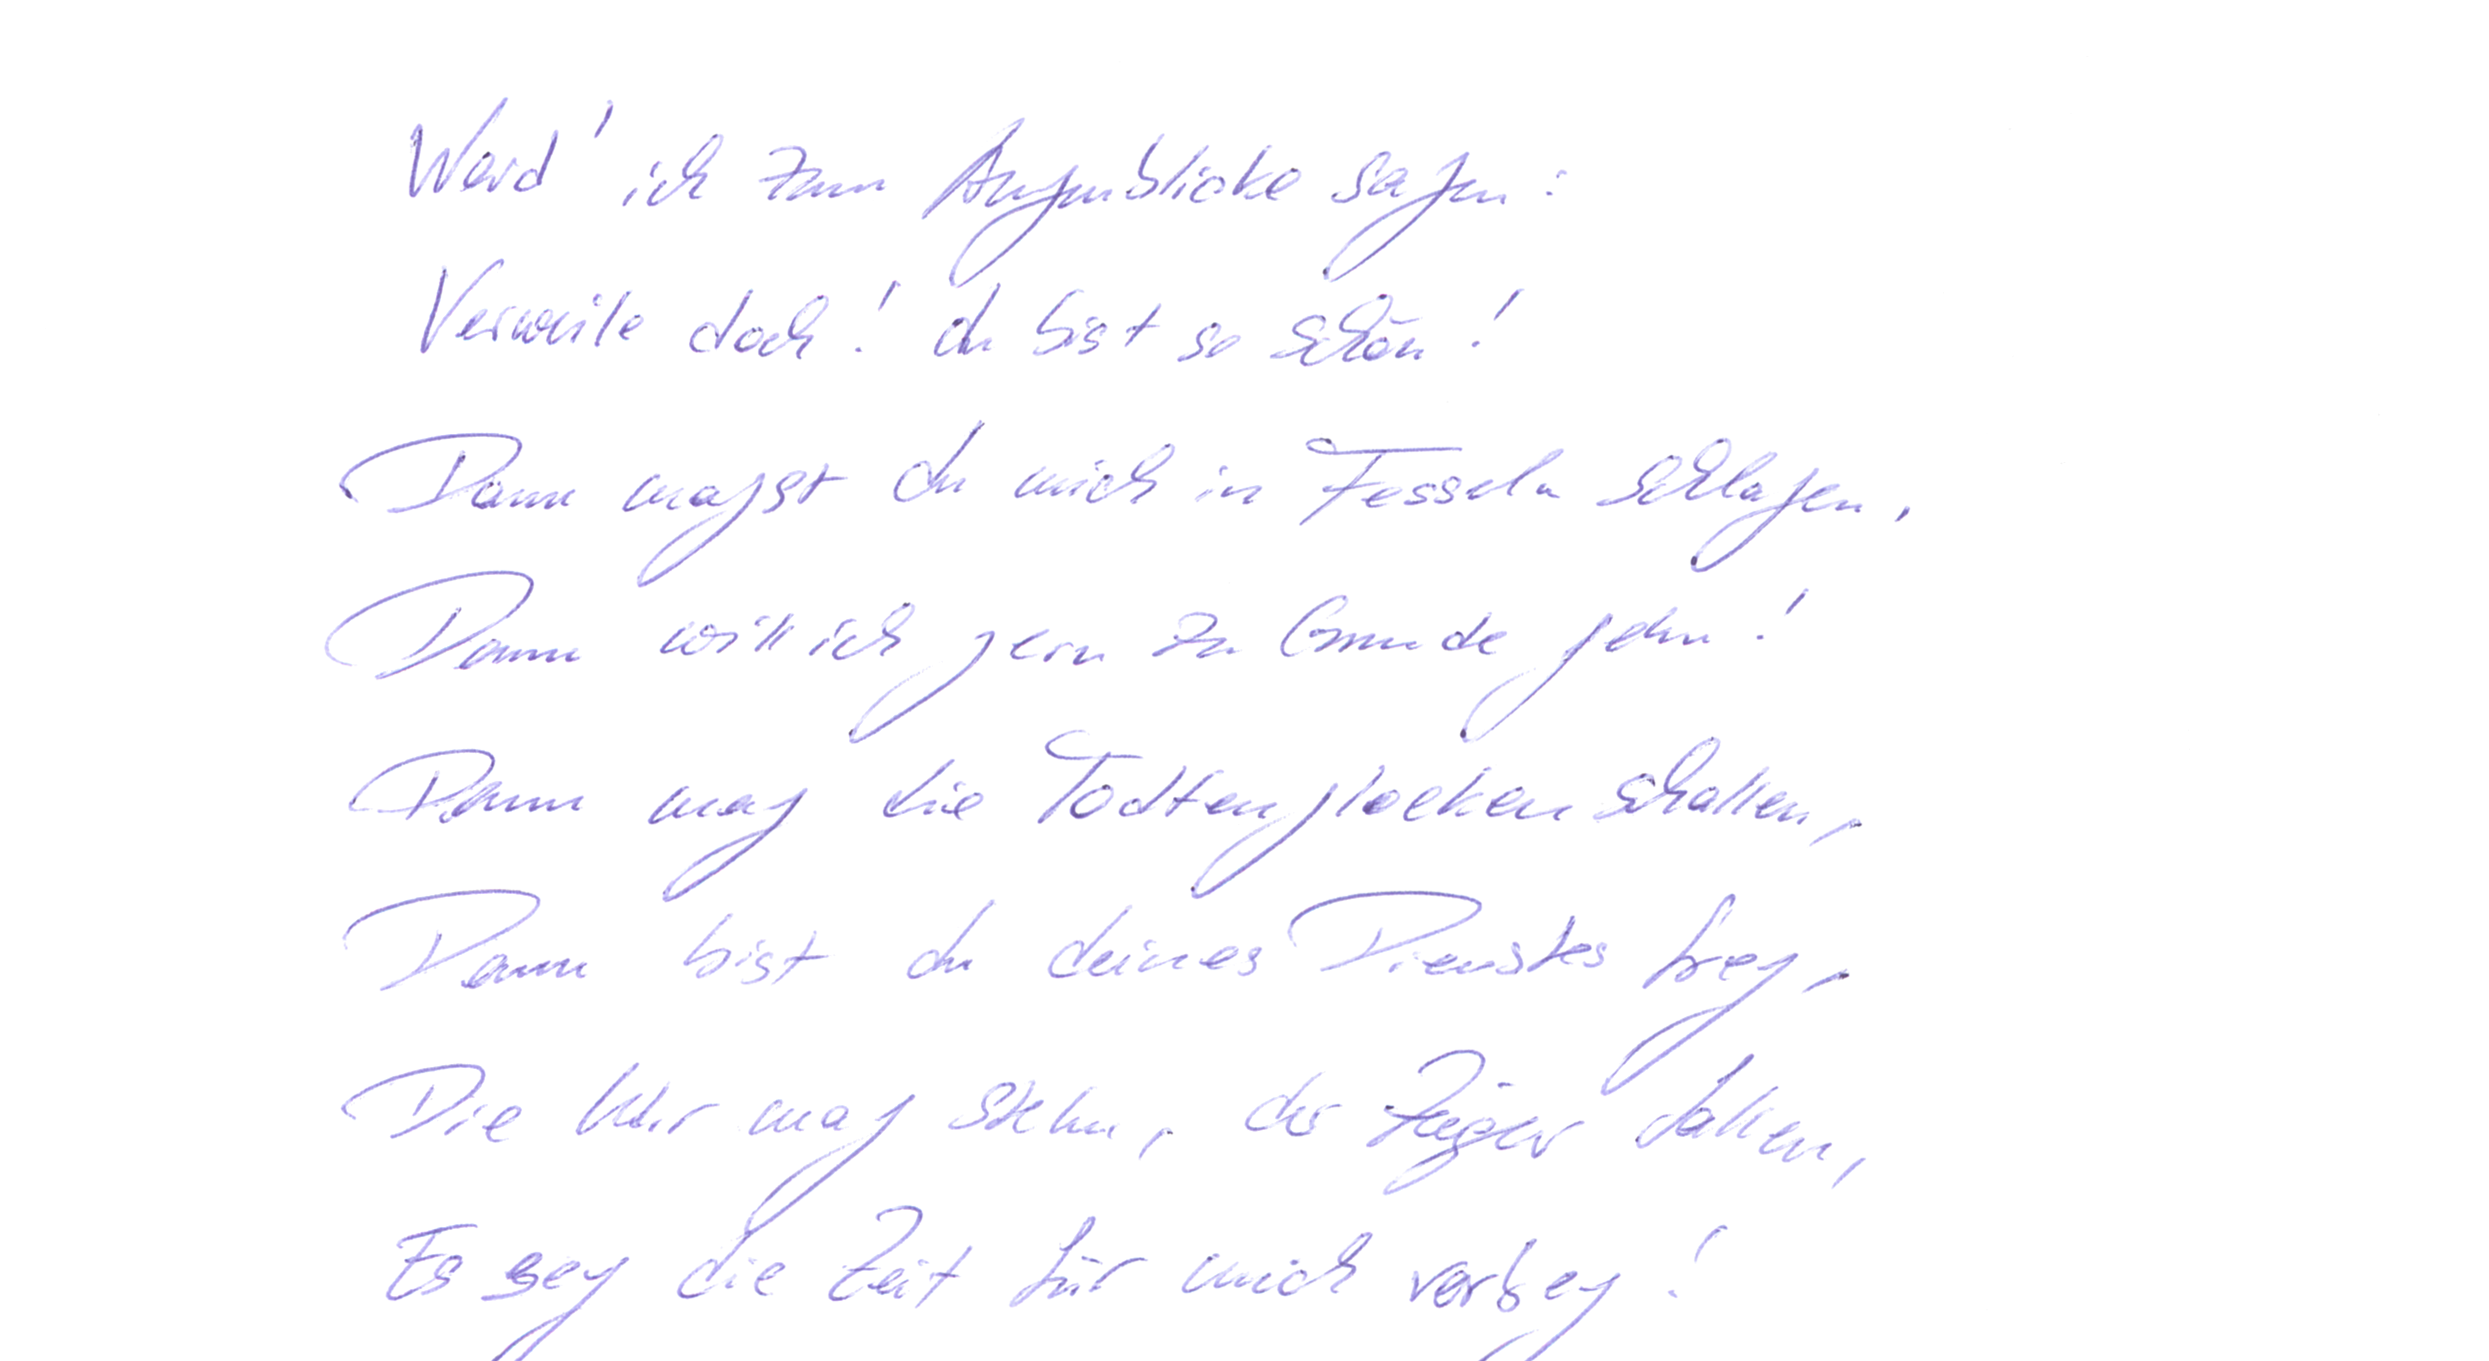 Werd' ich zum Augenblicke sagen:
Verweile doch! du bist so schön!
Dann magst du mich in Fesseln schlagen,
Dann will ich gern zu Grunde gehn!
Dann mag die Todtenglocken schallen,
Dann bist du deines Dienstes frey,
Die Uhr mag stehn, der Zeiger fallen,
Es sey die Zeit für mich vorbey!